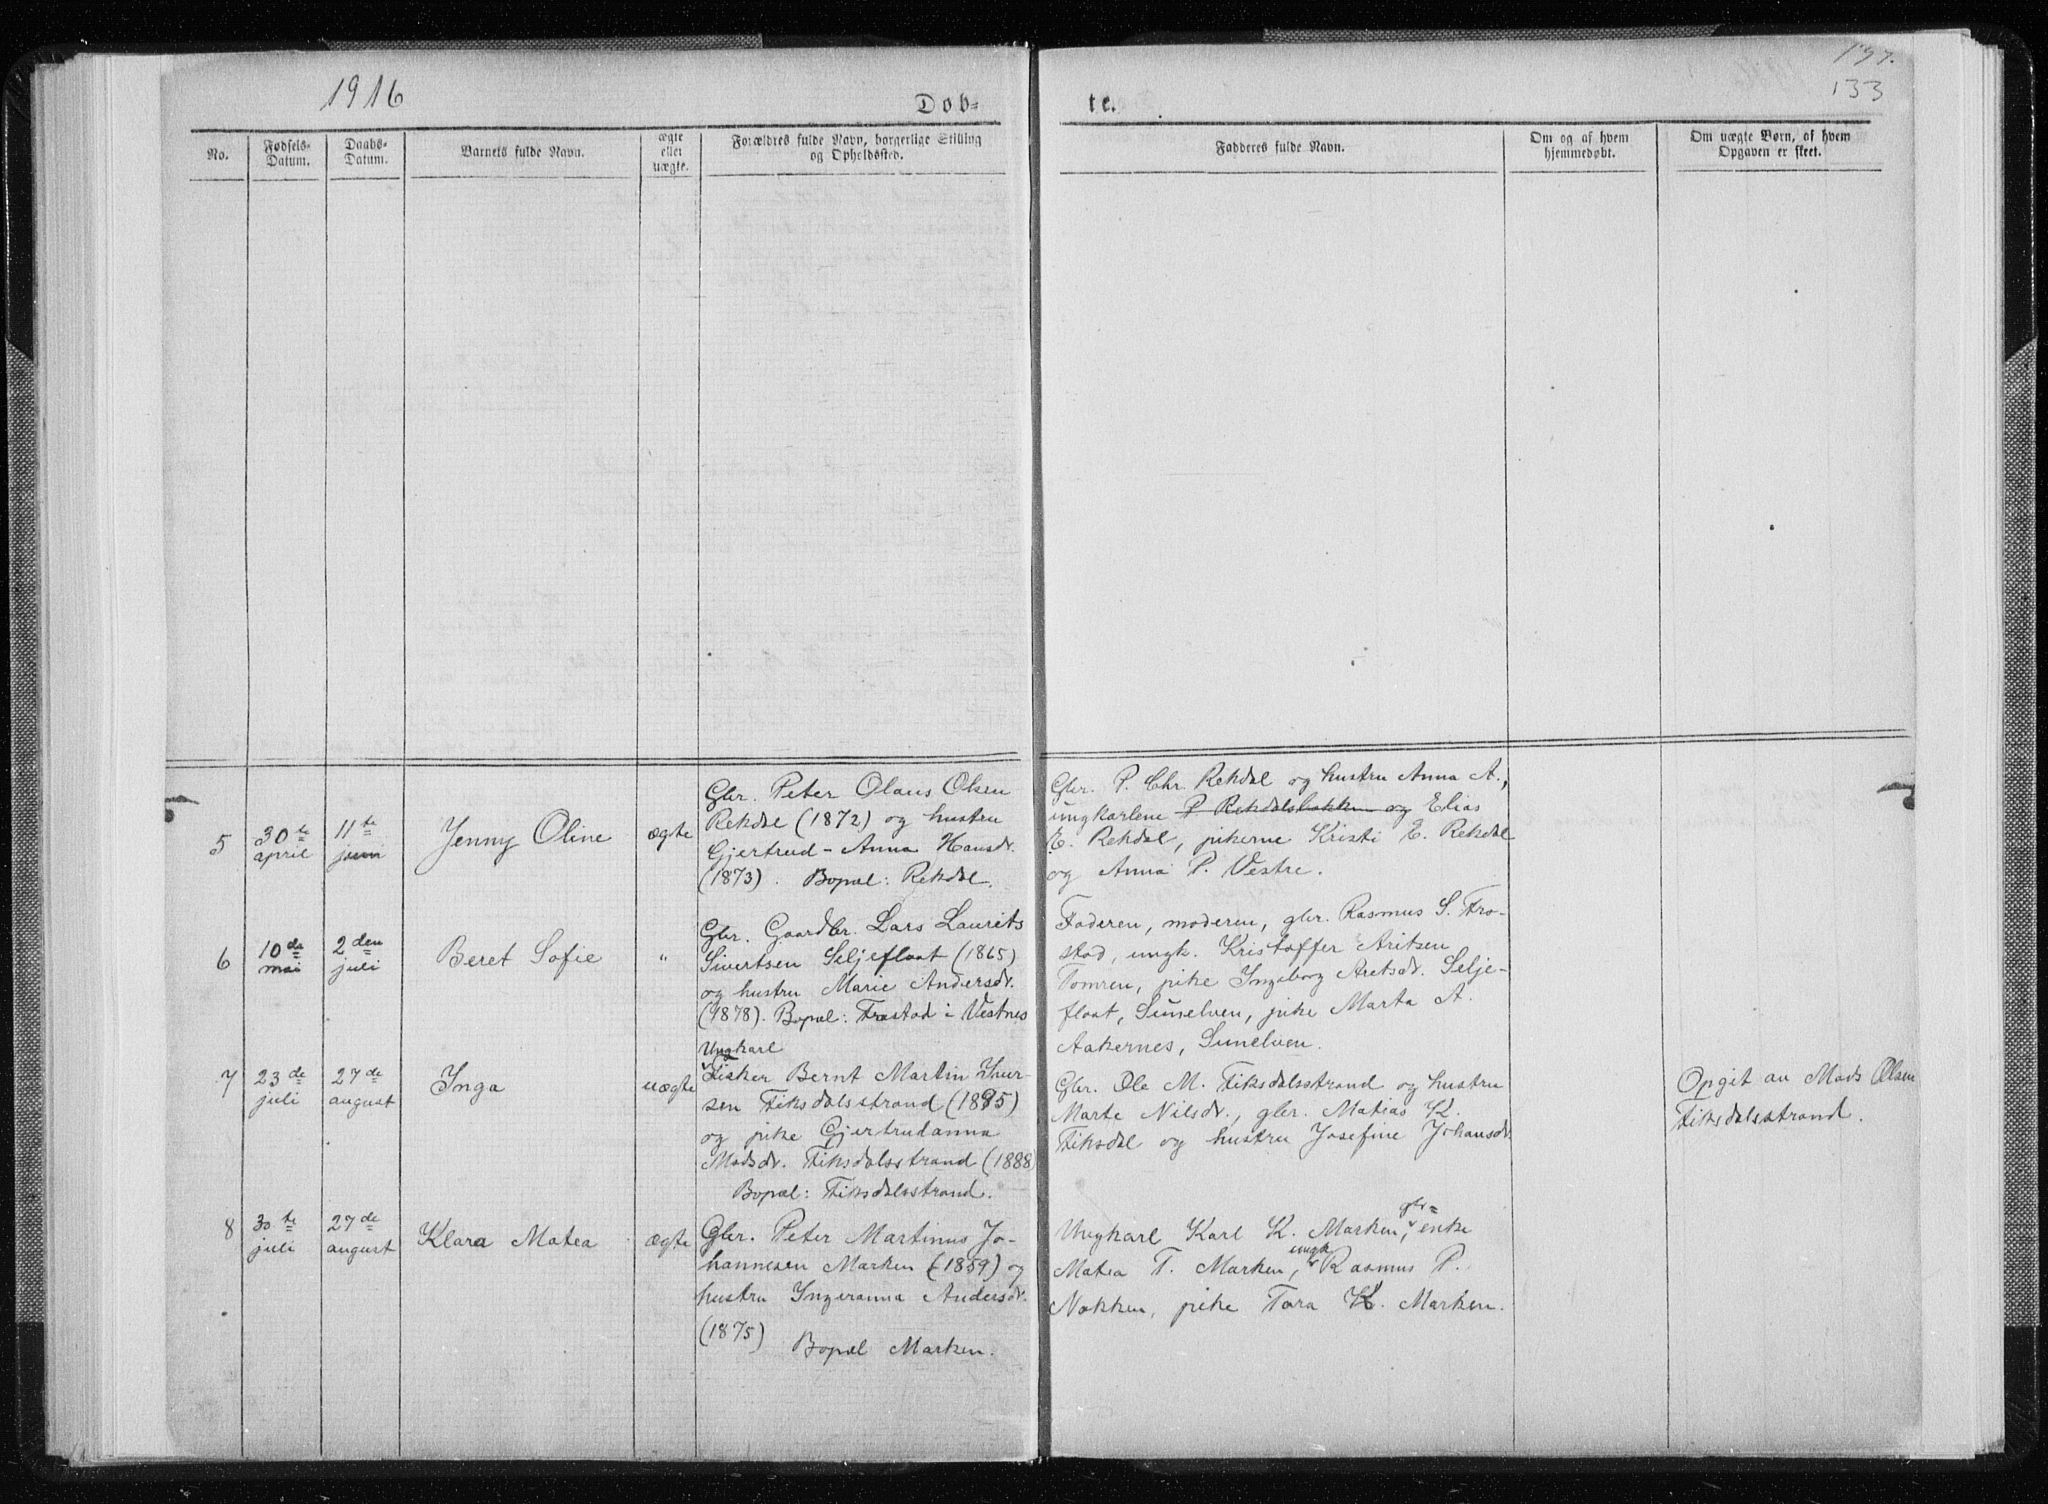 1916
Døb-
te.
133
No.
Fødsels-
Datum.
Daabs-
Datum.
Barnets fulde Navn.
ægte
eller
uægte.
Forældres fulde Navn, borgerlige Stilling
og Opholdssted.
Fadderes fulde Navn.
Om og af hvem
hjemmedøbt.
Om uægte Børn, af hvem
Opgaven er skeet.
5
30te
april
11te
juni
Jenny Oline
ægte
Gbr. Peter Olaus Olsen
Rekdal (1872) og hustru
Gjertrud-Anna Hansdr.
(1873). Bopæl: Rekdal.
Gbr. P. Chr. Rekdal og hustru Anna A.,
ungkarlene P Rekdalsbakken og Elias
E. Rekdal, pikerne Kristi E. Rekdal
og Anna P. Vestre.
6
10de
mai
2den
juli
Beret Sofie
"
Gbr. Gaardbr. Lars Laurits
Sivertsen Seljeflaat (1865)
og hustru Marie Andersdr.
(1878). Bopæl: Frostad i Vestnes
Faderen, moderen, gbr. Rasmus S. Fro-
stad, ungk. Kristoffer Aritsen
Tomren, pike Ingeborg Aretsdr. Selje-
flaat, Sunelven, pike Marta A.
Aakernes, Sunelven.
7
23de
juli
27de
august
Inga
uægte
Ungkarl
Fisker Bernt Martin Iver-
sen Fiksdalsstrand (1895)
og pike Gjertrudanna
Madsdr. Fiksdalsstrand (1888)
Bopæl: Fiksdalsstrand.
Gbr. Ole M. Fiksdalsstrand og hustru
Marte Nilsdr., gbr. Matias K.
Fiksdal og hustru Josefine Johansdr.
Opgit av Mads Olsen
Fiksdalsstrand.
8
30te
juli
27de
august
Klara Matea
ægte
Gbr. Peter Martinus Jo-
hannesen Marken (1859) og
hustru Ingeranna Andersdr.
(1875) Bopæl Marken.
gbr=
Ungkarl Karl K. Marken, enke
ungk
Matea T. Marken, Rasmus P.
Nakken, pike Tora K. Marken.